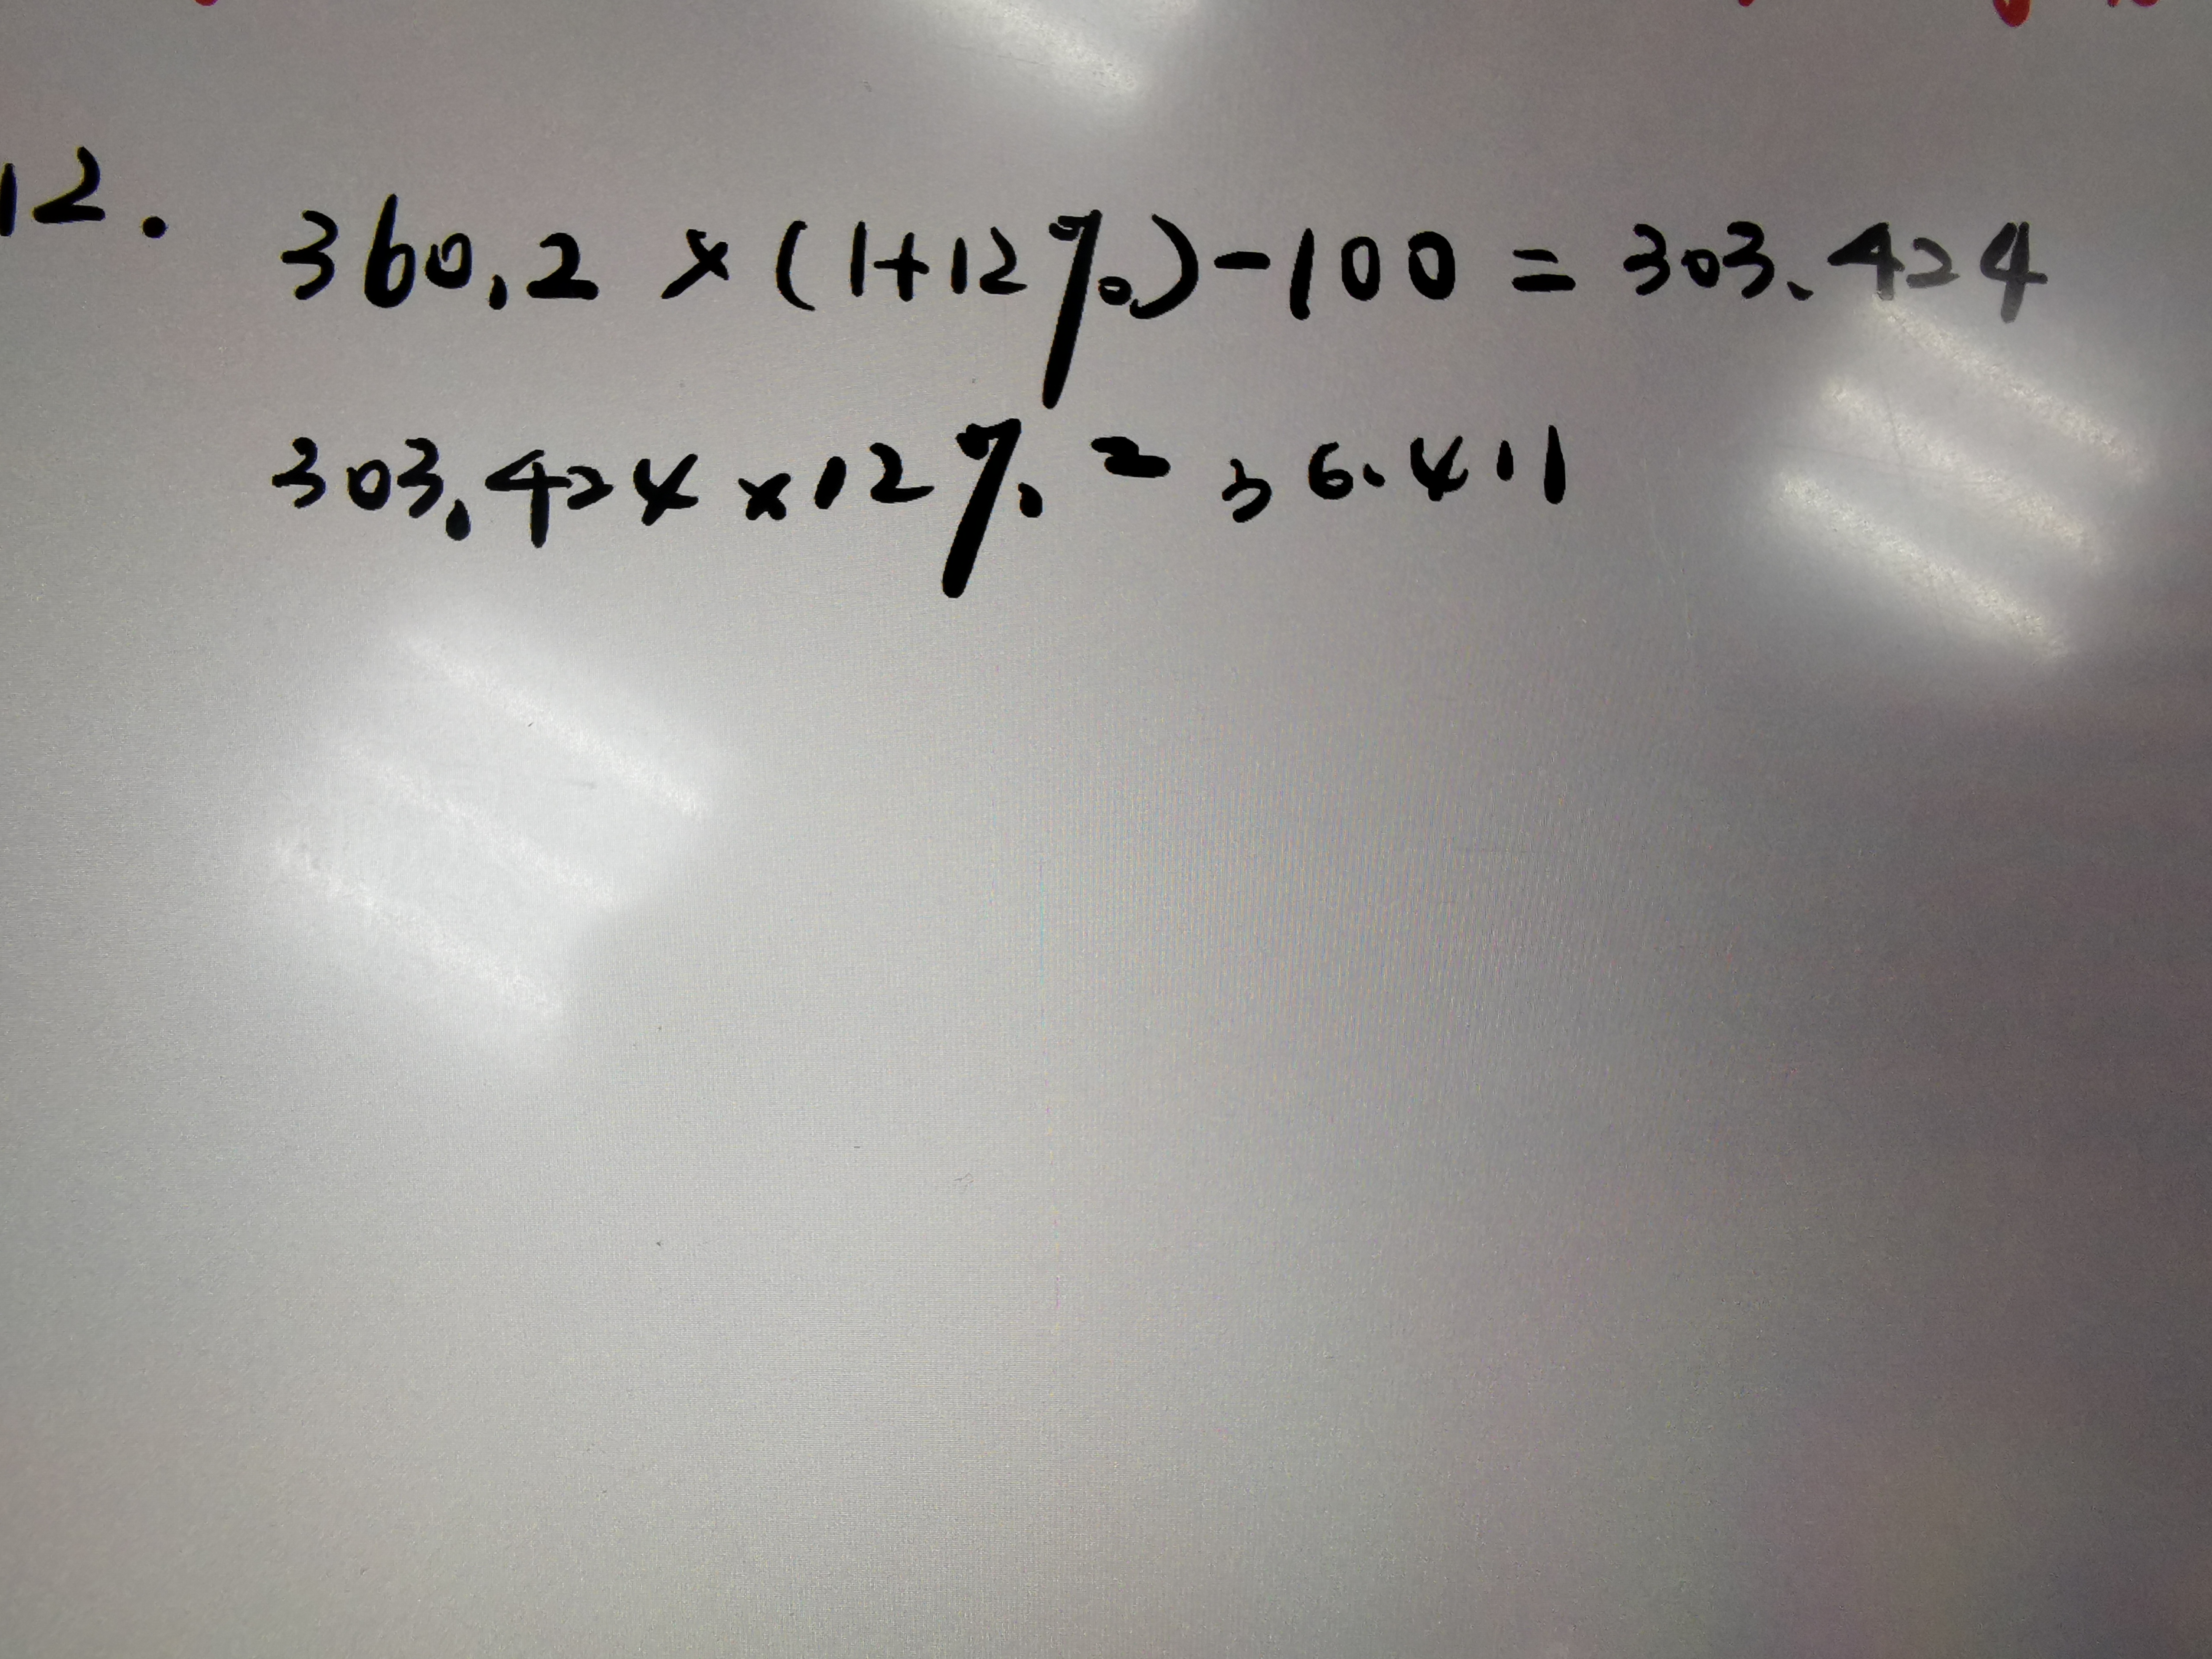 12. 360.2 × (1+12%)-100 = 303.424
303.424 × 12% = 36.411